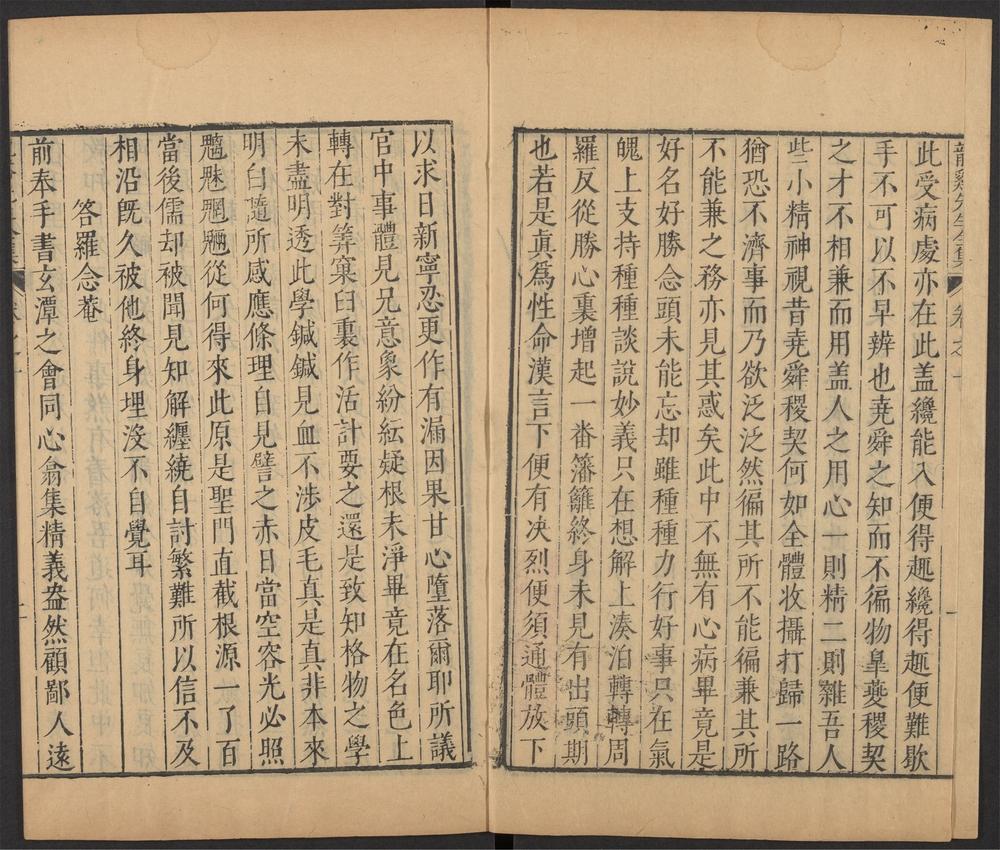 龍谿先生全集 卷之十
此受病處亦在此盖纔能入便得趣纔得趣便難歇
手不可以不早辨也堯舜之知而不徧物臯夔稷契
之才不相兼而用盖人之用心一則精二則雜吾人
些小精神視昔堯舜稷契何如全體收攝打歸一路
猶恐不濟事而乃欲泛泛然徧其所不能徧兼其所
不能兼之務亦見其惑矣此中不無有心病畢竟是
好名好勝念頭未能忘却雖種種力行好事只在氣
魄上支持種種談說妙義只在想解上湊泊轉轉周
羅反從勝心裏增起一番籓籬終身未見有出頭期
也若是真爲性命漢言下便有决烈便須通體放下
以求日新寧忍更作有漏因果甘心墮落爾耶所議
官中事體見兄意象紛紜疑根未淨畢竟在名色上
轉在對筭窠臼裏作活計要之還是致知格物之學
未盡明透此學鍼鍼見血不涉皮毛真是真非本來
明白隨所感應條理自見譬之赤日當空容光必照
魑魅魍魎從何得來此原是聖門直截根源一了百
當後儒却被聞見知解纏繞自討繁難所以信不及
相沿旣久被他終身埋沒不自覺耳
答羅念菴
前奉手書玄潭之會同心翕集精義盎然顧鄙人遠